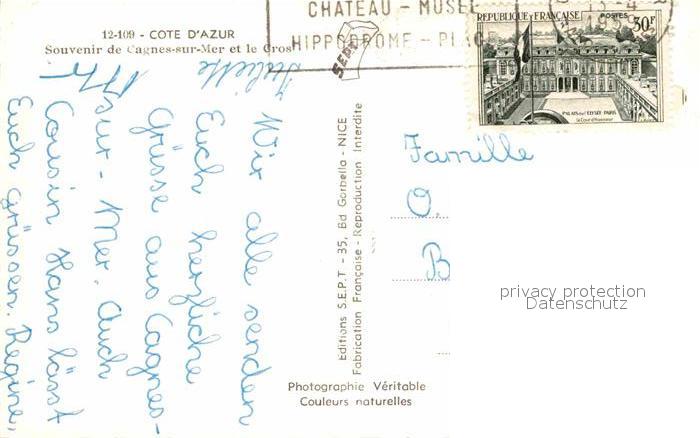 12-109 - COTE D'AZUR
Souvenir de Cagnes-sur-Mer et le Cros
CHATEAU - MUSEE
HIPPODROME - PLAG
SEPT
REPUBLIQUE FRANÇAISE POSTES
30F
PALAIS DE L'ELYSÉE PARIS
La Cour d'Honneur
Wir alle senden
Euch herzliche
Grüsse aus Cagnes-
sur-Mer. Auch
Cousin Hans lässt
Euch grüssen. Régine,
Juliette
Editions S.E.P.T - 35, Bd Gorbella - NICE
Fabrication Française - Reproduction Interdite
Famille
O.
B
privacy protection
Datenschutz
Photographie Véritable
Couleurs naturelles